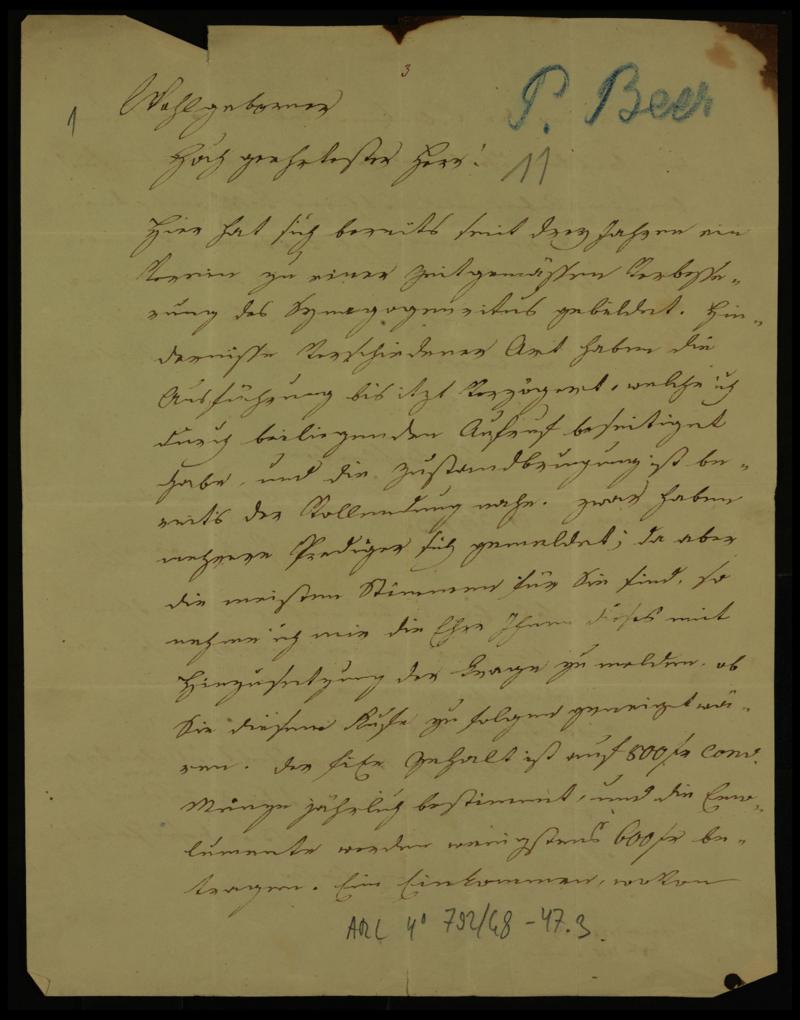 3
P. Beer
1
11
Wohlgeborner
Hoch geehrtester Herr!
Hier hat sich bereits seit drey Jahren ein
Verein zu einer zeitgemässen Verbesse-
rung des Synagogenritus gebildet. Hin-
dernisse verschiedener Art haben die
Ausführung bis itzt verzögert, welche ich
durch beiliegenden Aufruf beseitiget
habe, und die Zustandbringung ist be-
reits der Vollendung nahe. Zwar haben
mehrere Prediger sich gemeldet; da aber
die meisten Stimmen für Sie sind, so
nehme ich mir die Ehre Ihnen dieses mit
Hinzusetzung der Frage zu melden, ob
Sie diesem Rufe zu folgen geneigt wä-
ren. Der fixe Gehalt ist auf 800 fr Conv.
Münze jährlich bestimmt, und die Emo-
lumente werden wenigstens 600 fr be-
tragen. Ein Einkommen, wovon
ARC 4° 792/48-47.3.